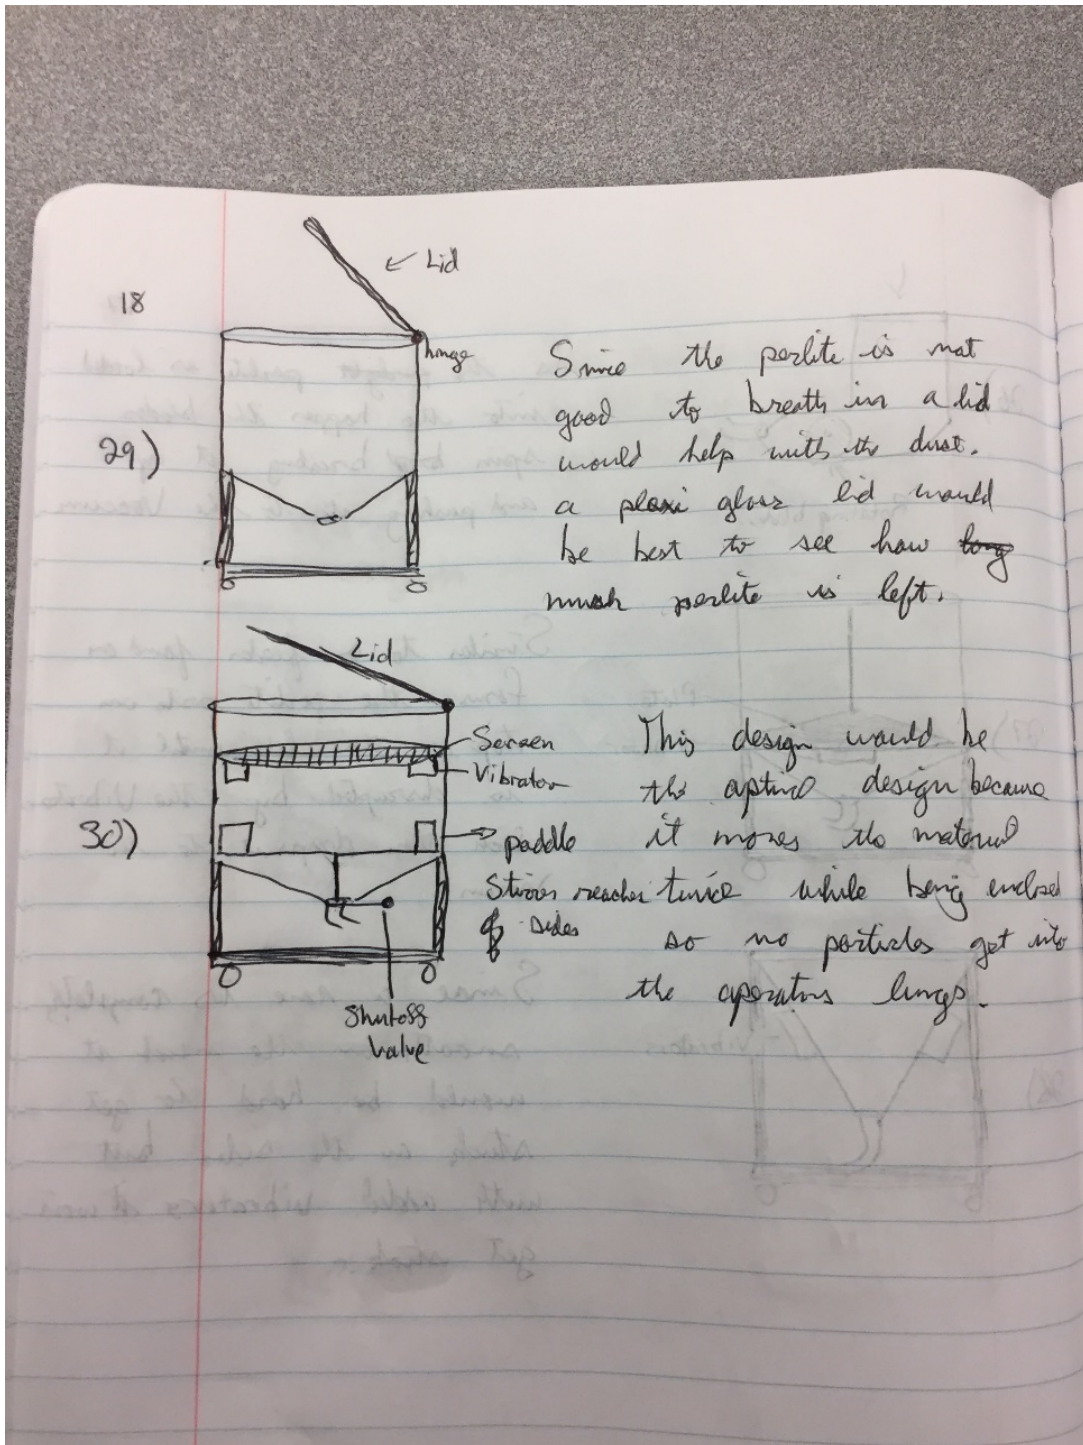 18
Lid
hinge
29)
Since the perlite is not
good to breath in a lid
would help with the dust.
a plexi glass lid would
be best to see how long
much perlite is left.
Lid
Screen
Vibrator
30)
paddle
Stirrer reaches
of sides
Shutoff
Valve
This design would be
the optimal design because
it moves the material
twice while being enclosed
so no particles get into
the operators lungs.